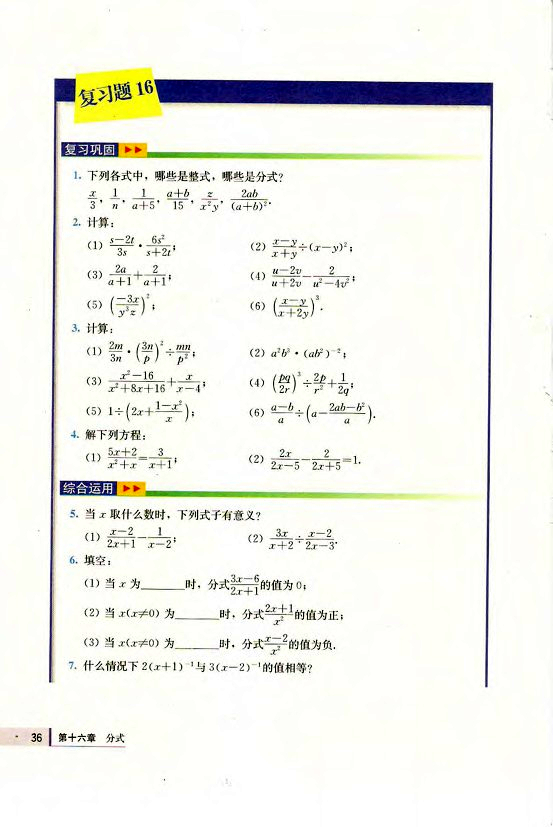 复习题 16
复习巩固
1. 下列各式中，哪些是整式，哪些是分式？
x/3, 1/n, 1/(a+5), (a+b)/15, z/(x²y), 2ab/(a+b)².
2. 计算：
(1) (s-2t)/3s · 6s²/(s+2t);  (2) (x-y)/(x+y)÷(x-y)²;
(3) 2a/(a+1)+2/(a+1);  (4) (u-2v)/(u+2v)-2/(u²-4v²);
(5) (-3x/(y³z))²;  (6) ((x-y)/(x+2y))³.
3. 计算：
(1) 2m/3n · (3n/p)²÷mn/p²;  (2) a²b³ · (ab²)⁻²;
(3) (x²-16)/(x²+8x+16)+x/(x-4);  (4) (pq/2r)³÷2p/r²+1/2q;
(5) 1÷(2x+(1-x²)/x);  (6) (a-b)/a÷(a-(2ab-b²)/a).
4. 解下列方程：
(1) (5x+2)/(x²+x)=3/(x+1);  (2) 2x/(2x-5)-2/(2x+5)=1.
综合运用
5. 当 x 取什么数时，下列式子有意义？
(1) (x-2)/(2x+1)-1/(x-2);  (2) 3x/(x+2)÷(x-2)/(2x-3).
6. 填空：
(1) 当 x 为______时，分式(3x-6)/(2x+1)的值为 0;
(2) 当 x(x≠0) 为______时，分式(2x+1)/x²的值为正;
(3) 当 x(x≠0) 为______时，分式(x-2)/x²的值为负.
7. 什么情况下 2(x+1)⁻¹与 3(x-2)⁻¹的值相等？
36 第十六章 分式